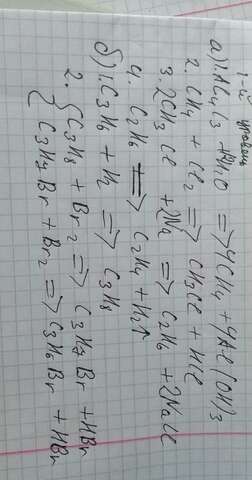 1 й уровень
а) 1. Al4C3 + H2O => 4CH4 + 4Al(OH)3
2. CH4 + Cl2 => CH3Cl + HCl
3. 2CH3Cl + 2Na => C2H6 + 2NaCl
4. C2H6 => C2H4 + H2↑
б) 1. C3H6 + H2 => C3H8
2. { C3H8 + Br2 => C3H7Br + HBr
C3H7Br + Br2 => C3H6Br + HBr